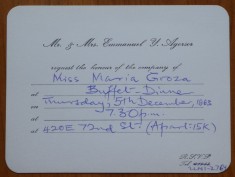 Mr. & Mrs. Emmanuel Y. Agorsor
request the honour of the company of
Miss Maria Groza
at Buffet-Dinner
on Thursday, 5th December, 1968
at 7.30 p.m.
at 420E 72nd St. (Apart: 15K)
R.S.V.P.